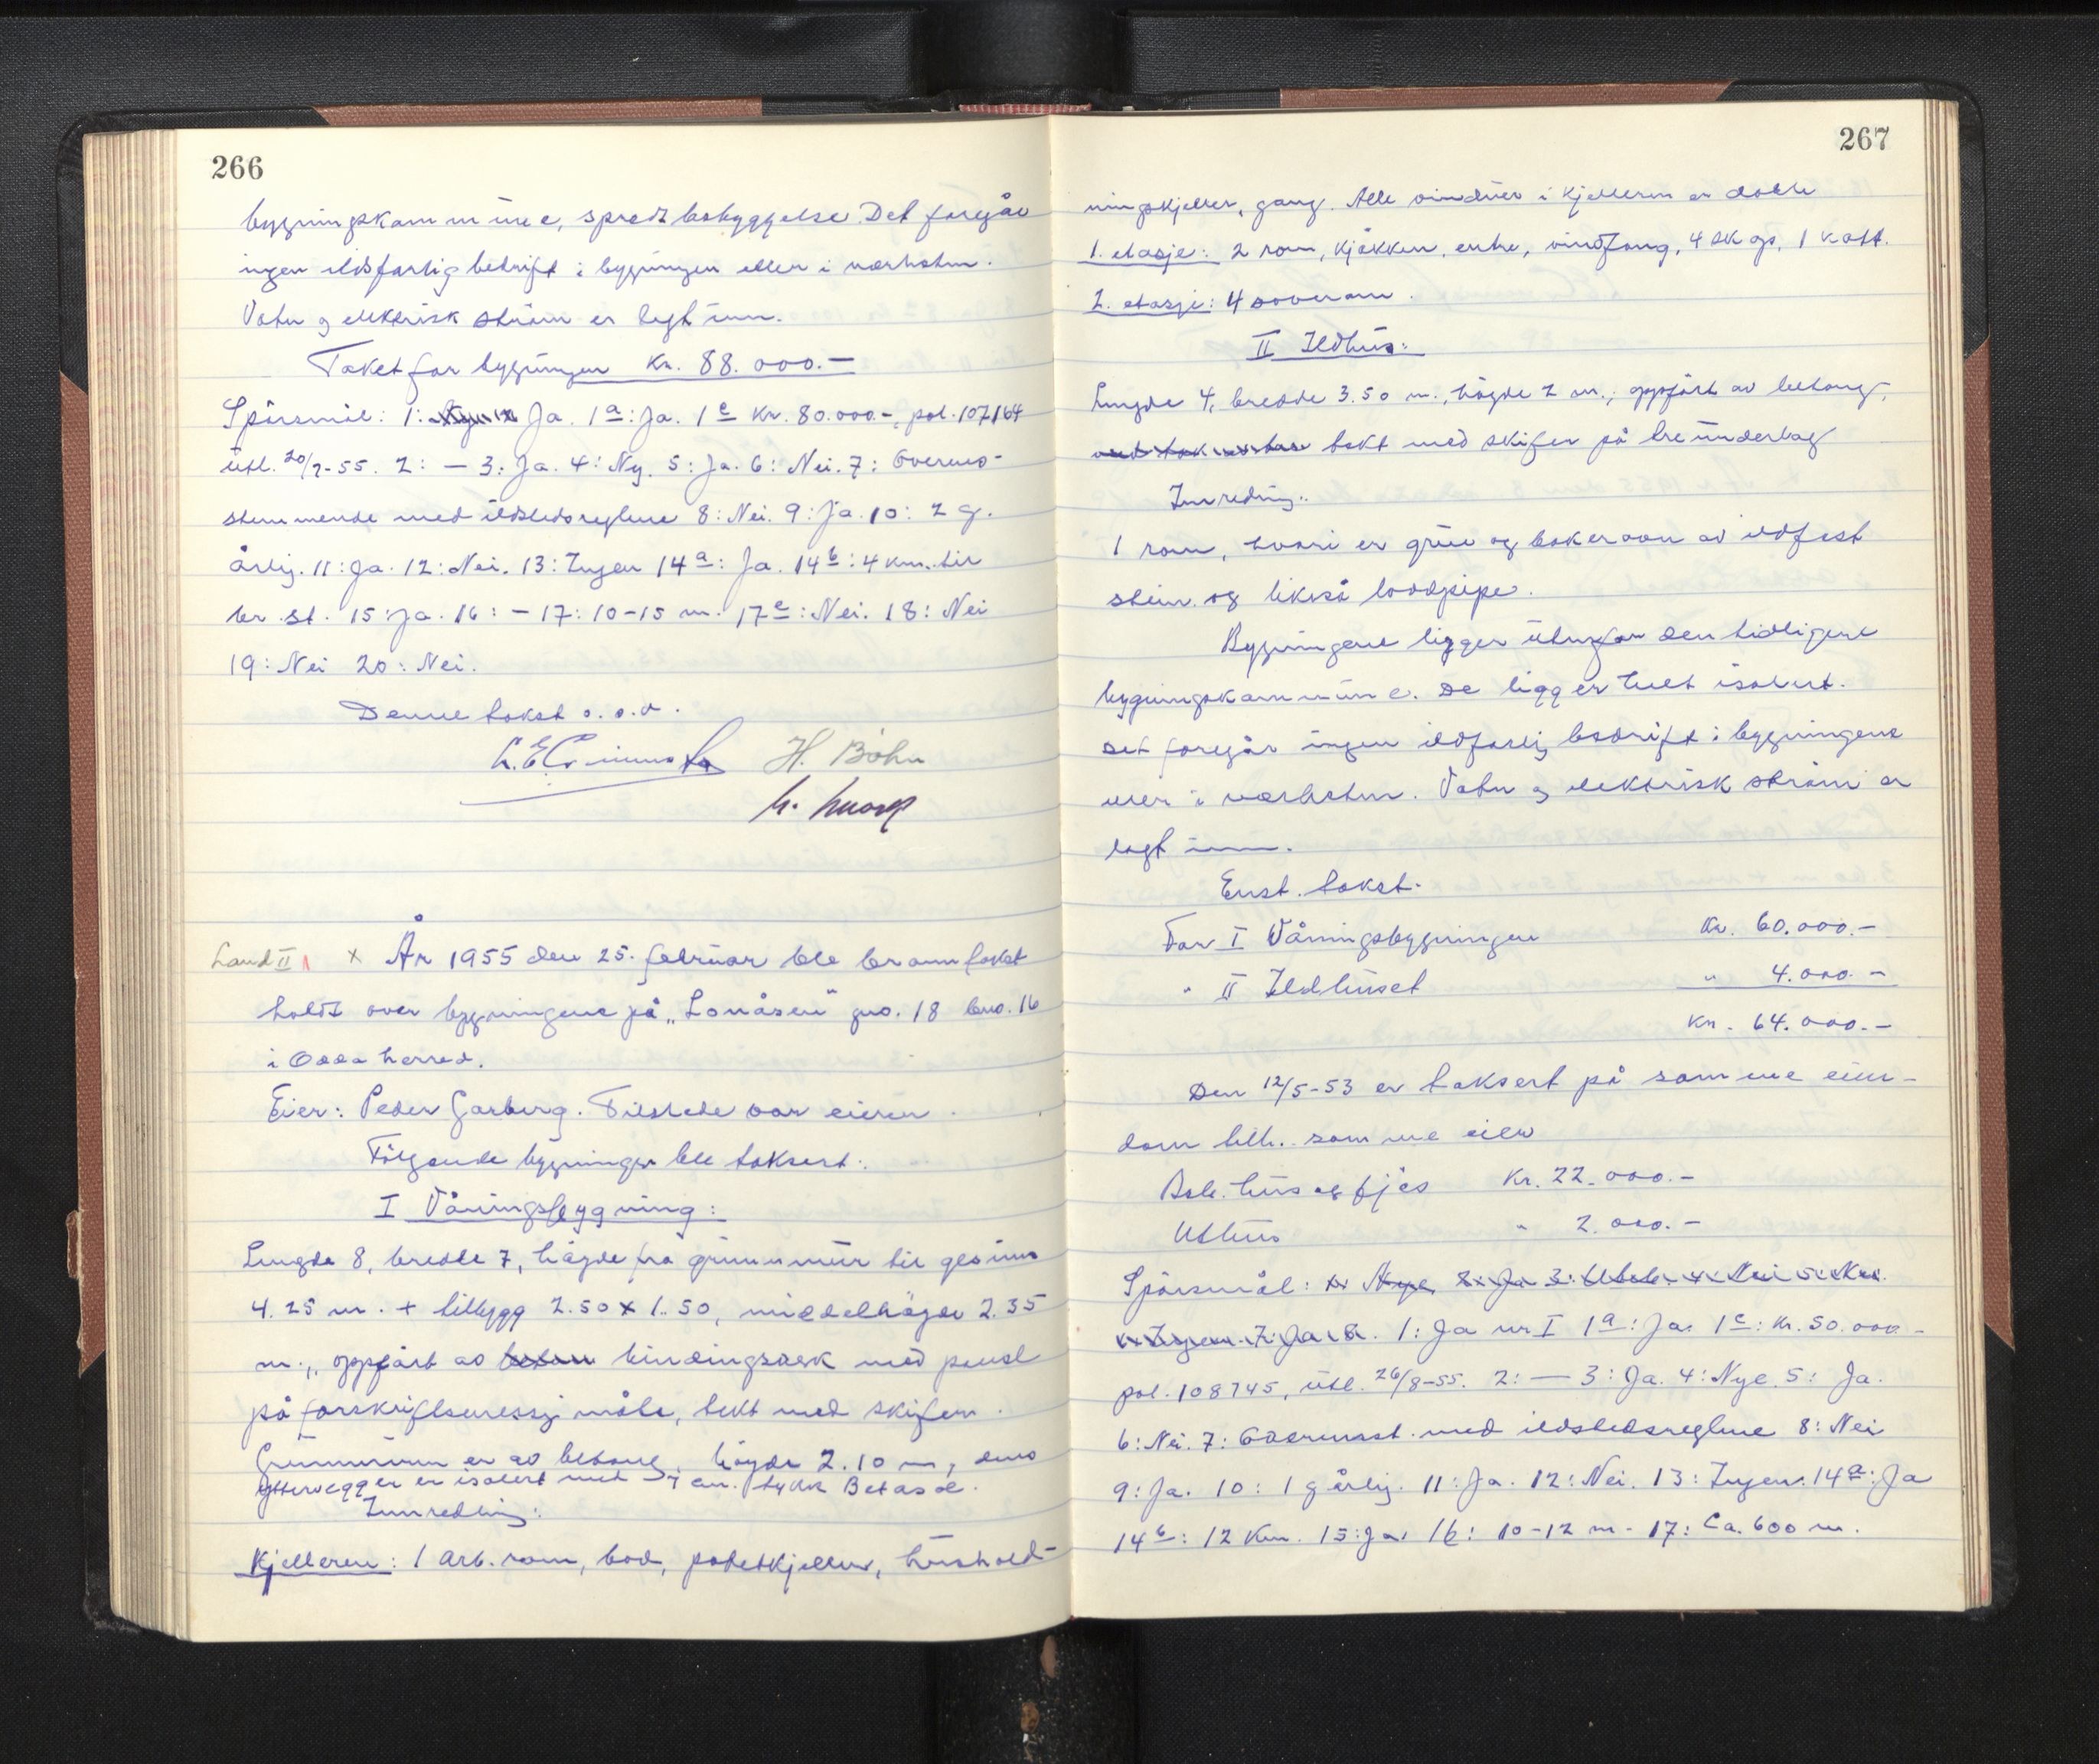 266
bygningskommune, spredt bebyggelse. Det foregår
ingen ildsfarlig bedrift i bygningen eller i nærheten.
Vatn og elektrisk strøm er lagt inn.
Takst for bygningen Kr. 88.000.-
Spörsmål: 1: Ja. 1a: Ja. 1c Kr. 80.000.-, pol. 107164
utl. 20/2-55. 2: — 3: Ja. 4: Ny. 5: Ja. 6: Nei. 7: Overens-
stemmende med ildstedsreglene 8: Nei. 9: Ja. 10: 2 g.
årlig. 11: Ja. 12: Nei. 13: Ingen 14a: Ja. 14b: 4 km. til
br. st. 15: Ja. 16: — 17: 10-15 m. 17c: Nei. 18: Nei
19: Nei 20: Nei.
Denne takst o.s.v.
H. Böhn
Land II 1 x År 1955 den 25. februar ble branntakst
holdt over bygningene på "Lonåsen" gno. 18 bno. 16
i Odda herred.
Eier: Peder Garberg. Tilstede var eieren.
Følgende bygninger ble taksert:
I Våningsbygning:
Lengde 8, bredde 7, høgde fra grunnmur til gesims
4.25 m. + tilbygg 2.50 x 1.50, middelhøgde 2.35
m., oppført av betong bindingsverk med panel
på forskriftsmessig måte, tekt med skifer.
Grunnmuren er av betong, høgde 2.10 m, dens
yttervegger er isolert med 7 cm. tykk Betasol.
Innredning:
Kjelleren: 1 arb. rom, bod, potetkjeller, hushold-
267
ningskjeller, gang. Alle vinduer i kjelleren er doble
1. etasje: 2 rom, kjøkken, entre, vindfang, 4 skap, 1 kott.
2. etasje: 4 soverom.
II Ildhus:
Lengde 4, bredde 3.50 m., høgde 2 m., oppført av betong,
tekt med skifer på treunderlag
Innredning:
1 rom, hvori er grue og bakerovn av ildfast
stein og likeså loddpipe.
Bygningene ligger utenfor den tidligere
bygningskommune. De ligger helt isolert.
Det foregår ingen ildfarlig bedrift i bygningene
eller i nærheten. Vatn og elektrisk strøm er
lagt inn.
Enst. takst.
For I Våningsbygningen Kr. 60.000.-
" II Ildhuset " 4.000.-
Kr. 64.000.-
Den 12/5-53 er taksert på samme eien-
dom tilh. samme eier
Beb. hus og fjøs Kr. 22.000.-
Uthus " 2.000.-
Spørsmål: 1: Nye, 2: Ja 3:
1: Ja nr I 1a: Ja. 1c: Kr. 50.000.-
pol. 108745, utl. 26/8-55. 2: — 3: Ja. 4: Nye. 5: Ja.
6: Nei. 7: Overensst. med ildstedsreglene 8: Nei
9: Ja. 10: 1 g årlig. 11: Ja. 12: Nei. 13: Ingen. 14a: Ja
14b: 12 km. 15: Ja. 16: 10-12 m. 17: Ca. 600 m.